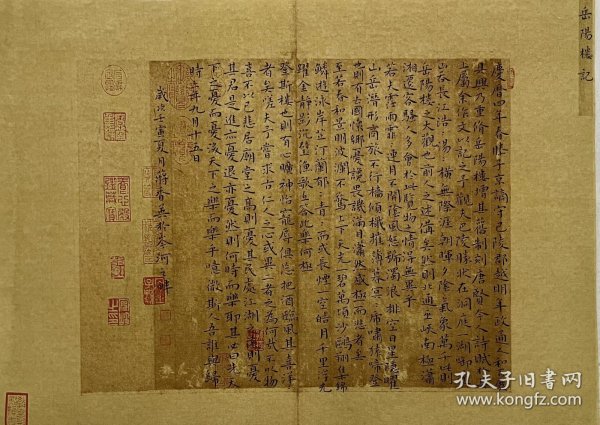 岳陽樓記
慶曆四年春滕子京謫守巴陵郡越明年政通人和
具興乃重修岳陽樓增其舊制刻唐賢今人詩賦
上屬余作文以記之予觀夫巴陵勝狀在洞庭一湖銜
山吞長江浩浩湯湯橫無際涯朝暉夕陰氣象萬千此則
岳陽樓之大觀也前人之述備矣然則北通巫峽南極瀟
湘遷客騷人多會於此覽物之情得無異乎
若夫霪雨霏霏連月不開陰風怒號濁浪排空日星隱曜
山岳潛形商旅不行檣傾楫摧薄暮冥冥虎嘯猿啼登
也則有去國懷鄉憂讒畏譏滿目蕭然感極而悲者矣
至若春和景明波瀾不驚上下天光一碧萬頃沙鷗翔集錦
鱗游泳岸芷汀蘭郁郁青青而或長煙一空皓月千里浮光
躍金靜影沉璧漁歌互答此樂何極
登斯樓也則有心曠神怡寵辱偕忘把酒臨風其喜洋洋
者矣嗟夫予嘗求古仁人之心或異二者之為何哉不以物
喜不以己悲居廟堂之高則憂其民處江湖之遠則憂
其君是進亦憂退亦憂然則何時而樂耶其必曰先天
下之憂而憂後天下之樂而樂乎噫微斯人吾誰與歸
時六年九月十五日
歲次壬寅夏月蔣香
孔夫子旧书网
www.kongfz.com